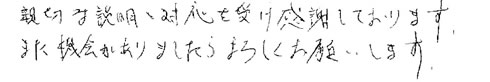 親切な説明、対応を受け感謝しております。
また機会がありましたらよろしくお願いします。